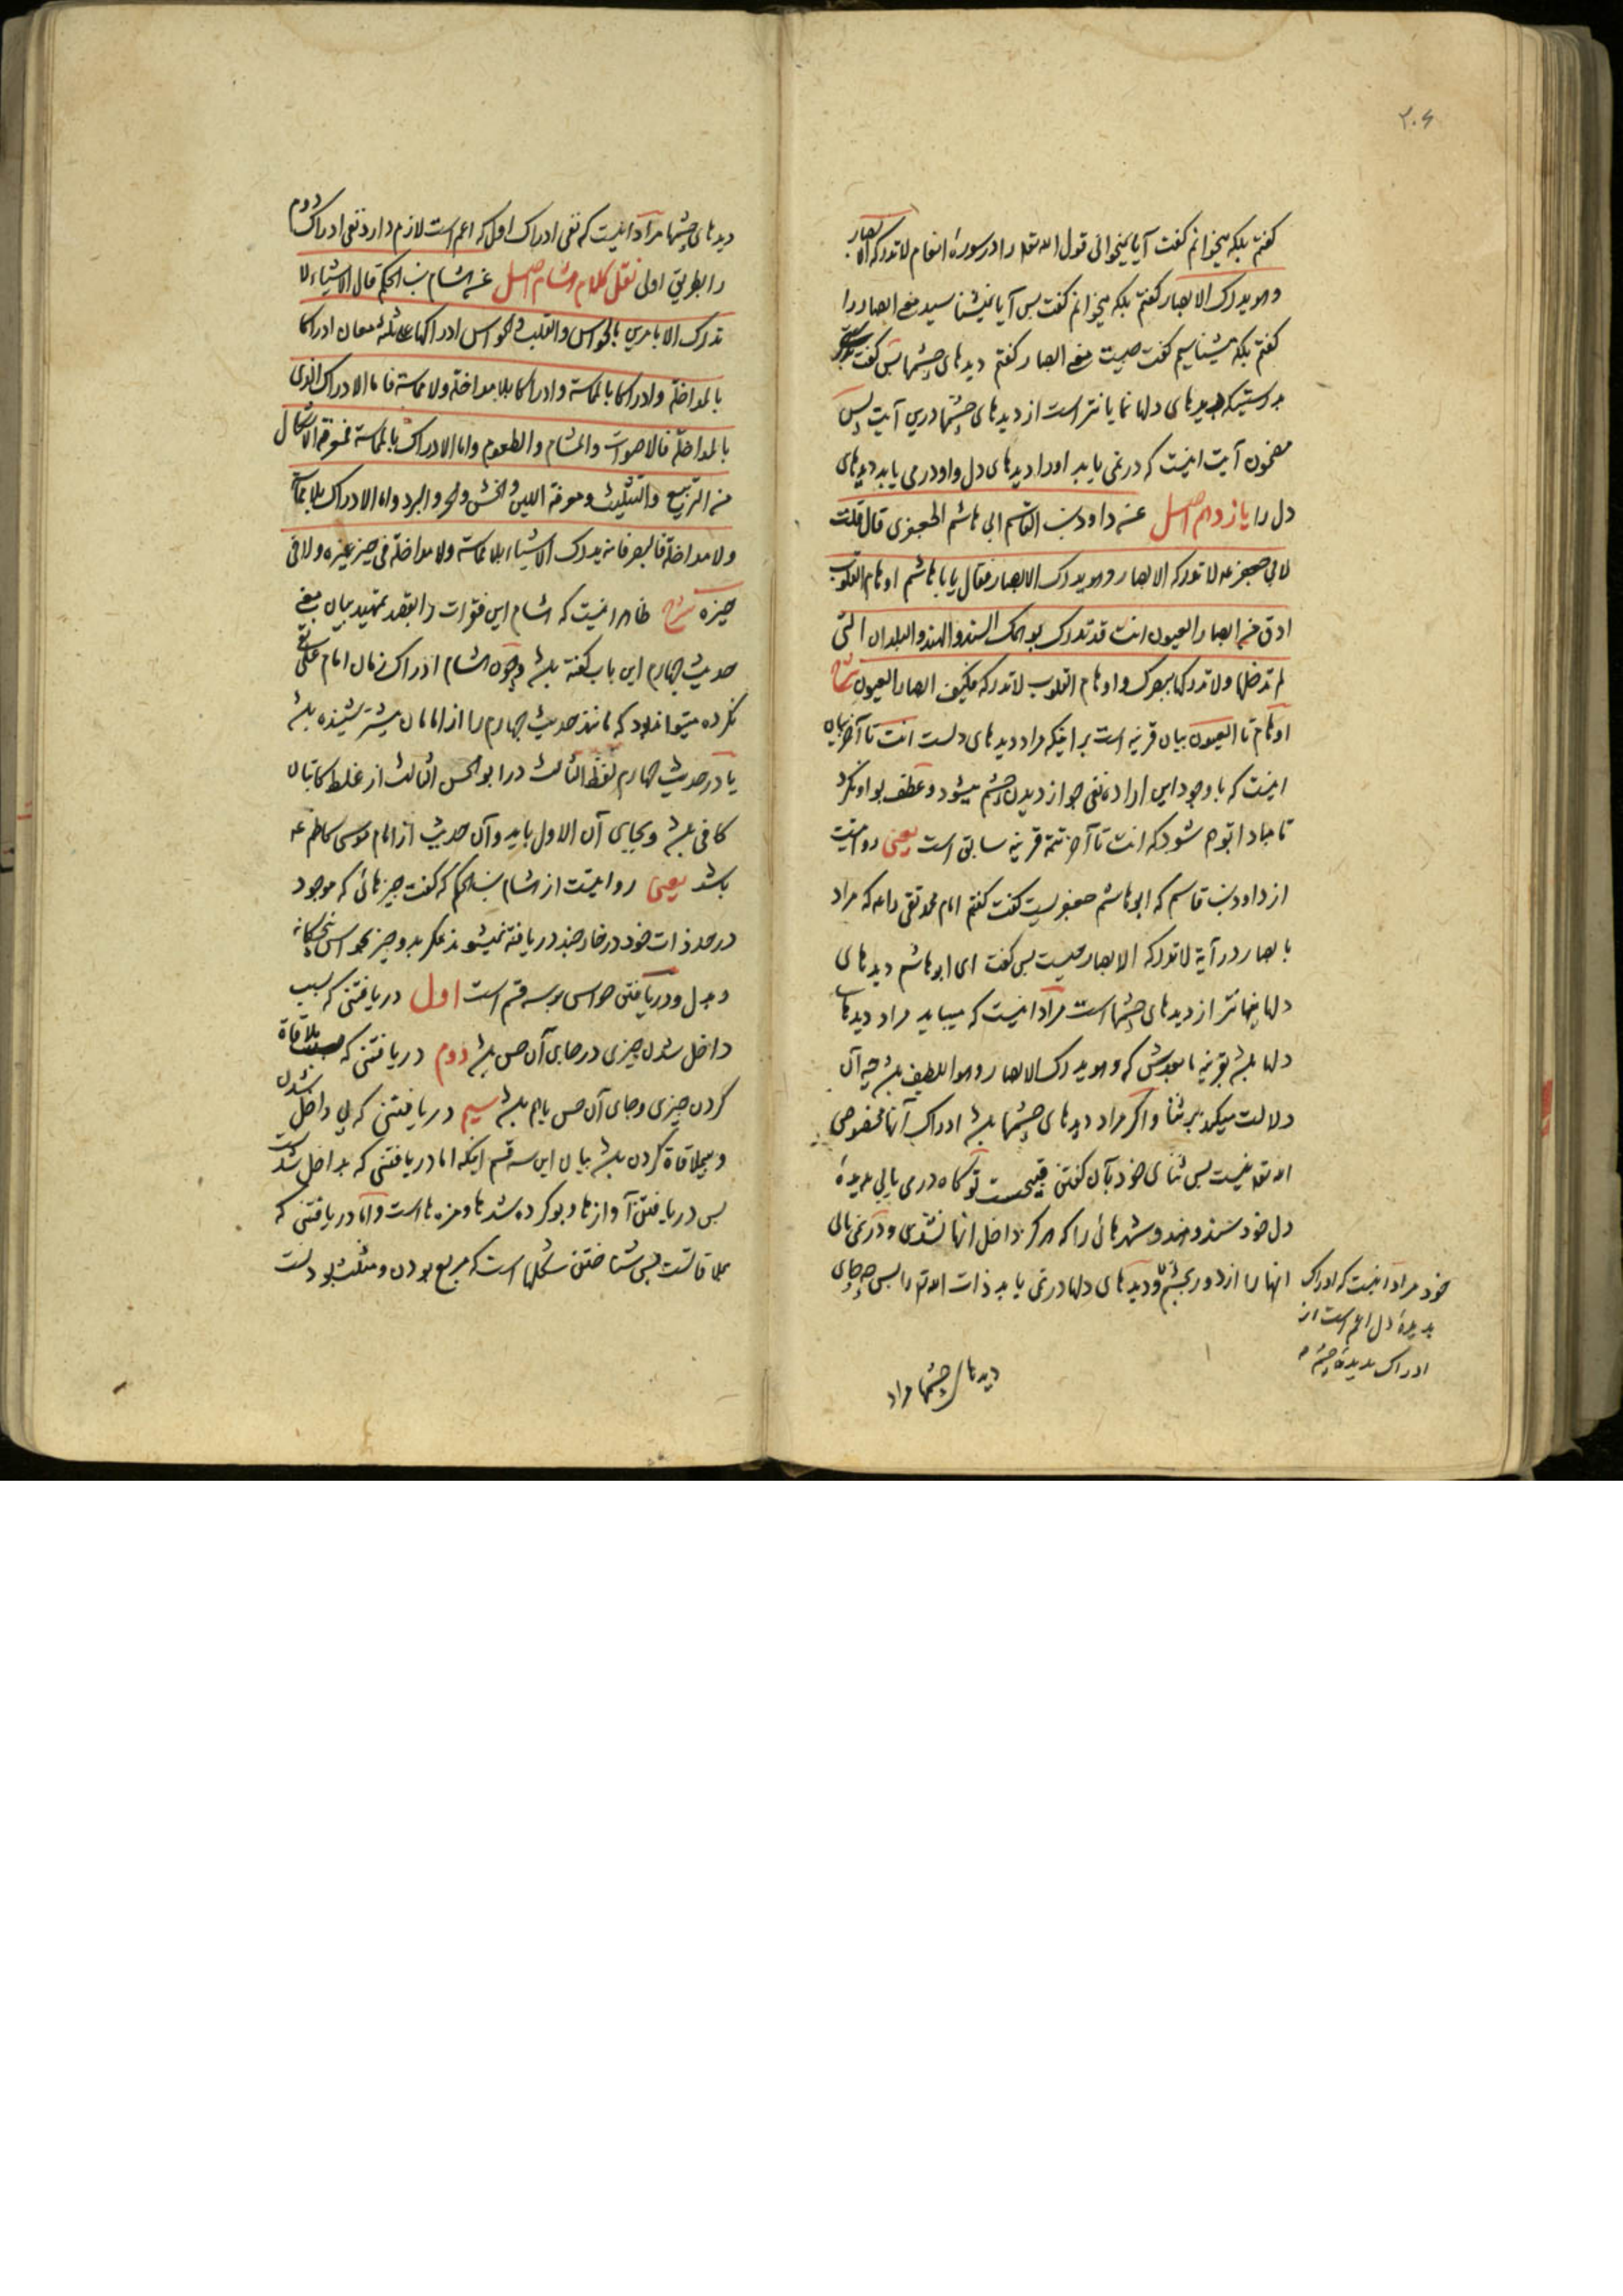 ۲۰۶
گفتم بلکه میخوانم گفت آیا نمیخوانی قول الله تعالی را در سورهٔ انعام لا تدرکه الابصار
وهو یدرک الابصار گفتم بلکه میخوانم گفت پس آیا نمیشناسید معنی ابصار را
گفتم بلکه میشناسیم گفت چیست معنی ابصار گفتم دیدهای چشمها پس گفت
بدرستیکه دیدهای دلها نمایانتر است از دیدهای چشمها درین آیت پس
مضمون آیت اینست که در نمی یابد او را دیدهای دل و او در می یابد دیدهای
دل را یازدهم اصل عن داود بن القاسم ابی هاشم الجعفری قال قلت
لابی جعفر ع لا تدرکه الابصار وهو یدرک الابصار فقال یا با هاشم اوهام القلوب
ادق من ابصار العیون انت قد تدرک بوهمک السند والهند والبلدان التی
لم تدخلها ولا تدرکها ببصرک واوهام القلوب لا تدرکه فکیف ابصار العیون شرح
اوهام تا العیون بیان قرینه است بر اینکه مراد دیدهای دلست انت تا آخر بیان
اینست که با وجود این اراده نفی جواز دیدن چشم میشود و عطف بواو نکرد
تا مبادا توهم شود که انت تا آخر تتمه قرینه سابق است یعنی روایتست
از داود بن قاسم که ابو هاشم جعفریست گفت گفتم امام محمد تقی را ع که مراد
بابصار در آیه لا تدرکه الابصار چیست پس گفت ای ابو هاشم دیدهای
دلها پنهانتر از دیدهای چشمها است مراد اینست که میباید مراد دیدهای
دلها باشد بقرینه ما بعدش که وهو یدرک الابصار وهو اللطیف باشد چه آن
دلالت میکند بر ثنا و اگر مراد دیدهای چشمها باشد ادراک آنها مخصوص
الله تعالی نیست پس ثنای خود بآن گفتن قبیحست تو گاه در می یابی بدیدهٔ
دل خود سند و هند و شهرهائی را که هرگز داخل انها نشدی و در نمی یابی
انها را از دور بچشم و دیدهای دلها در نمی یابد ذات الله تعالی را پس چه جای
خود مراد اینست که ادراک
بدیدهٔ دل اعم است از
ادراک بدیدهٔ چشم
دیدهای چشمها مراد
دیدهای چشمها مراد اینست که نفی ادراک اول که اعم است لازم دارد نفی ادراک دوم
را بطریق اولی نقل کلام هشام اصل عن هشام بن الحکم قال الاشیاء لا
تدرک الا بامرین بالحواس والقلب والحواس ادراکها علی ثلثه معان ادراکا
بالمداخلة وادراکا بالمماسة وادراکا بلا مداخلة ولا مماسة فاما الادراک الذی
بالمداخلة فالاصوات والمشام والطعوم واما الادراک بالمماسة فمعرفة الاشکال
من التربیع والتثلیث ومعرفة اللین والخشن والحر والبرد واما الادراک بلا مماسة
ولا مداخلة فالبصر فانه یدرک الاشیاء بلا مماسة ولا مداخلة فی حیز غیره ولا فی
حیزه شرح ظاهر اینست که هشام این فقرات را بقصد تمهید بیان بعض
حدیث چهارم این باب گفته باشد و چون هشام ادراک زمان امام علی نقی
نکرده میتواند بود که مانند حدیث چهارم را از امامان پیشتر شنیده باشد
یا در حدیث چهارم لفظ الثالث در ابو الحسن الثالث از غلط کاتبان
کافی باشد و بجای آن الاول باید و آن حدیث از امام موسی کاظم ع
باشد یعنی روایتست از هشام بن الحکم که گفت چیزهائی که موجود
در حد ذات خود در خارجند دریافته نمیشوند مگر بدو چیز بحواس پنجگانه
و بدل و دریافتن حواس بر سه قسم است اول دریافتنی که بسبب
داخل شدن چیزی در جای آن حس باشد دوم دریافتنی که بملاقاة
کردن چیزی و جای آن حس باهم باشد سیم دریافتنی که بی داخل شدن
و بیملاقاة کردن باشد بیان این سه قسم اینکه اما دریافتنی که بداخل شدنست
پس دریافتن آوازها و بو کرده شدها و مزه ها است و اما دریافتنی که
بملاقاتست پس شناختن شکلها است که مربع بودن و مثلث بودنست